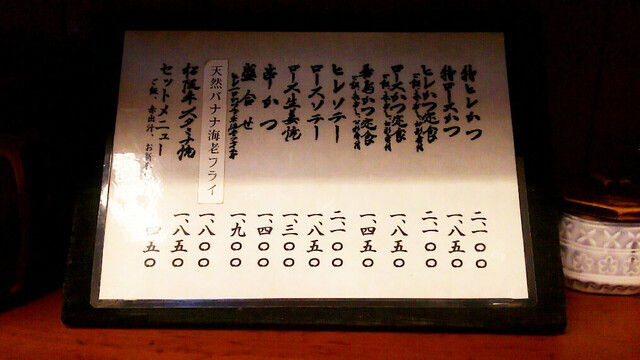 特ヒレかつ 二一〇〇
特ロースかつ 一、八五〇
ヒレかつ定食 二一〇〇
ロースかつ定食 一、八五〇
かつ定食 一、四五〇
ヒレソテー 二一〇〇
ロースソテー 一、八五〇
ロース生姜焼 一、三〇〇
串かつ 一、四〇〇
盛合せ 一、九〇〇
天然バナナ海老フライ 一、八〇〇
松阪牛スタミナ焼 一、八五〇
セットメニュー 四五〇
ご飯、赤出汁、お新